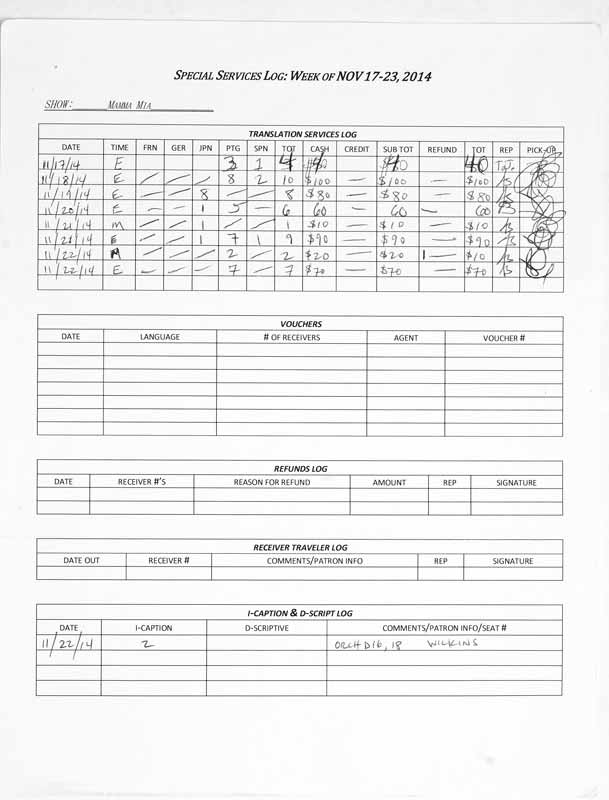 SPECIAL SERVICES LOG: WEEK OF NOV 17-23, 2014
SHOW: MAMMA MIA
TRANSLATION SERVICES LOG
DATE TIME FRN GER JPN PTG SPN TOT CASH CREDIT SUB TOT REFUND TOT REP PICK-UP
11/17/14 E 3 1 4 $40 $40 40
11/18/14 E — — — 8 2 10 $100 — $100 — $100 JB
11/19/14 E — — 8 — — 8 $80 — $80 — $80 JB
11/20/14 E — — 1 5 — 6 60 — 60 — 60 JB
11/21/14 M — — 1 — — 1 $10 — $10 — $10 JB
11/21/14 E — — 1 7 1 9 $90 — $90 — $90 JB
11/22/14 M — — — 2 — 2 $20 — $20 1 — $10 JB
11/22/14 E — — — 7 — 7 $70 — $70 — $70 JB
VOUCHERS
DATE LANGUAGE # OF RECEIVERS AGENT VOUCHER #
REFUNDS LOG
DATE RECEIVER #'S REASON FOR REFUND AMOUNT REP SIGNATURE
RECEIVER TRAVELER LOG
DATE OUT RECEIVER # COMMENTS/PATRON INFO REP SIGNATURE
I-CAPTION & D-SCRIPT LOG
DATE I-CAPTION D-SCRIPTIVE COMMENTS/PATRON INFO/SEAT #
11/22/14 2 ORCH D16, 18 WILKINS